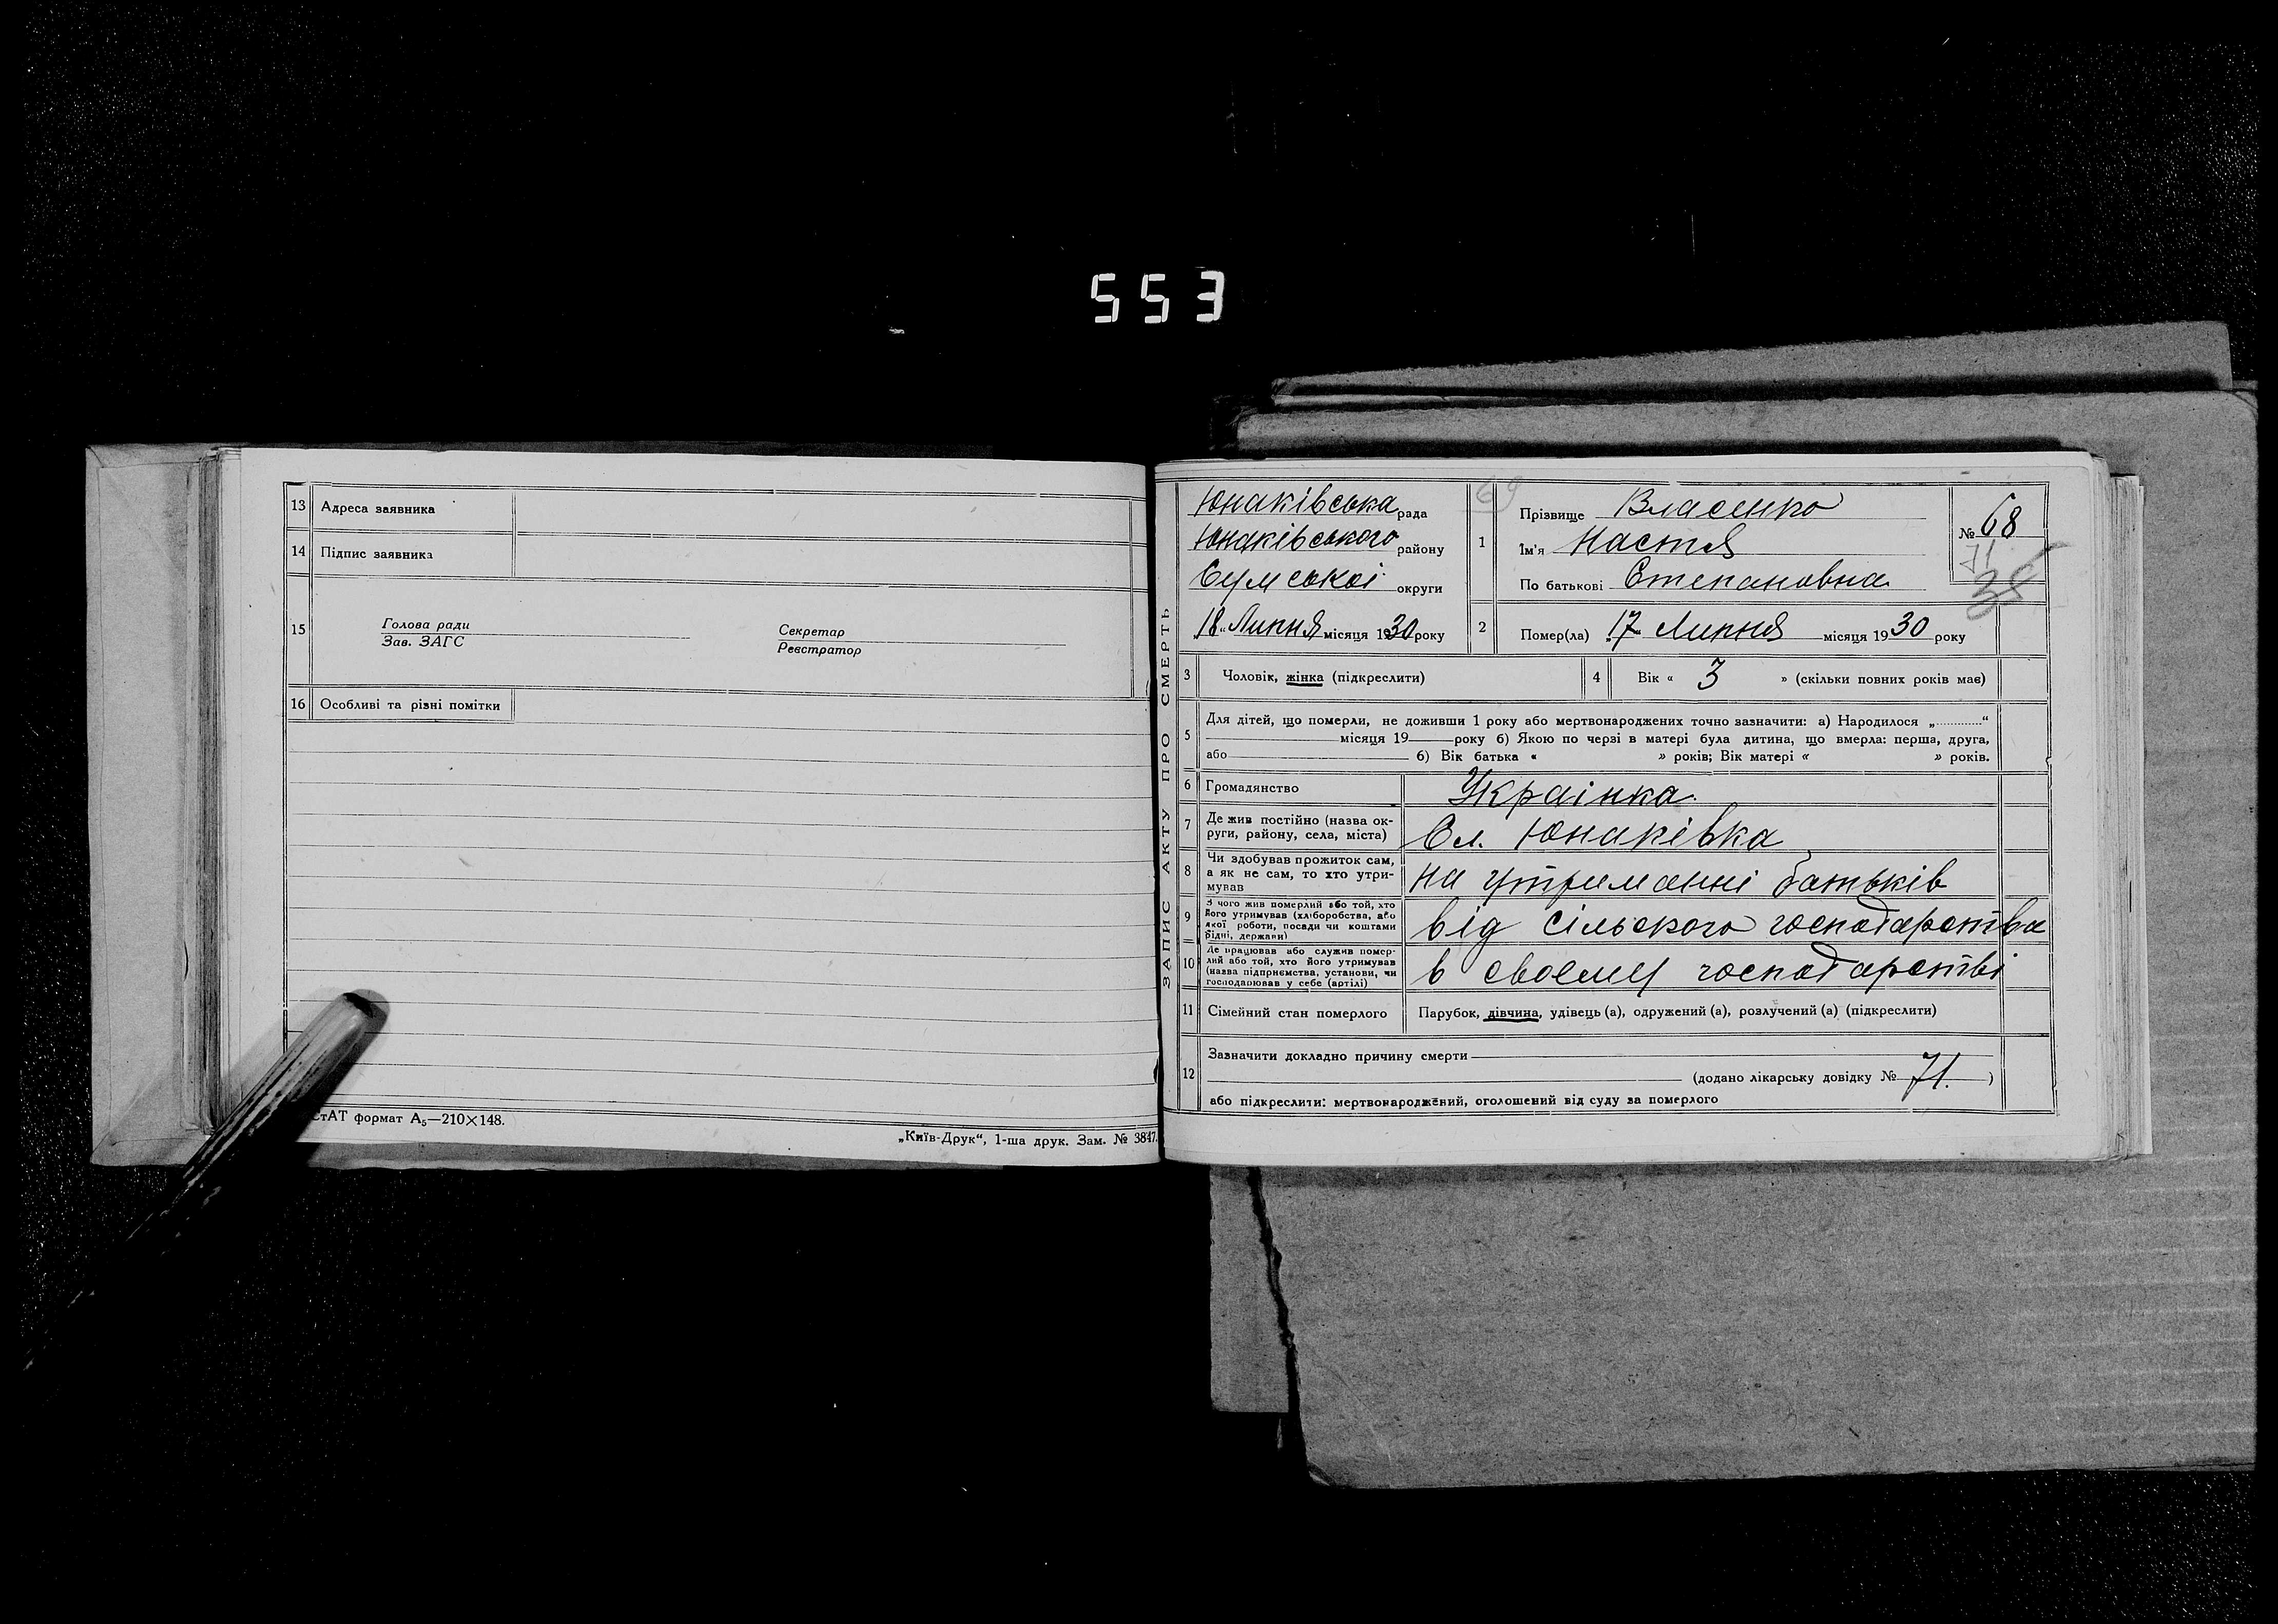 553
13 Адреса заявника
14 Підпис заявника
15 Голова ради
Зав. ЗАГС
Секретар
Реєстратор
16 Особливі та різні помітки
стАТ формат А₅—210×148.
„Київ-Друк“, 1-ша друк. Зам. № 3847.
ЗАПИС АКТУ ПРО СМЕРТЬ
Юнаківська рада
Юнаківського району
Сумської округи
18 „ Липня місяця 1930 року
69
1 Прізвище Власенко
Ім'я Настя
По батькові Степановна
№ 68
71
35
2 Помер(ла) 17 Липня місяця 1930 року
3 Чоловік, жінка (підкреслити)
4 Вік « 3 » (скільки повних років має)
5 Для дітей, що померли, не доживши 1 року або мертвонароджених точно зазначити: а) Народилося „............“
місяця 19 року б) Якою по черзі в матері була дитина, що вмерла: перша, друга,
або б) Вік батька « » років; Вік матері « » років.
6 Громадянство Украінка.
7 Де жив постійно (назва ок-
руги, району, села, міста) Сл. Юнаківка
8 Чи здобував прожиток сам,
а як не сам, то хто утри-
мував на утриманні батьків
9 З чого жив померлий або той, хто
його утримував (хліборобства, або
якої роботи, посади чи коштами
рідні, держави) від сільского господарства
10 Де працював або служив помер-
лий або той, хто його утримував
(назва підприємства, установи, чи
господарював у себе (артілі) в своєму господарстві
11 Сімейний стан померлого Парубок, дівчина, удівець (а), одружений (а), розлучений (а) (підкреслити)
12 Зазначити докладно причину смерти
(додано лікарську довідку № 71. )
або підкреслити: мертвонароджений, оголошений від суду за померлого